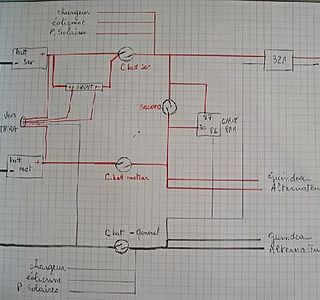 chargeur
éolienne
P. Solaires
batt
Ser
+
C. batt Ser
32A
SHUNT
Vers
Secours
87
30
86
batt
mot
+
C. batt moteur
Guindeau
Alternateur
C batt - General
Guindeau
Alternateur
chargeur
éolienne
P. Solaires